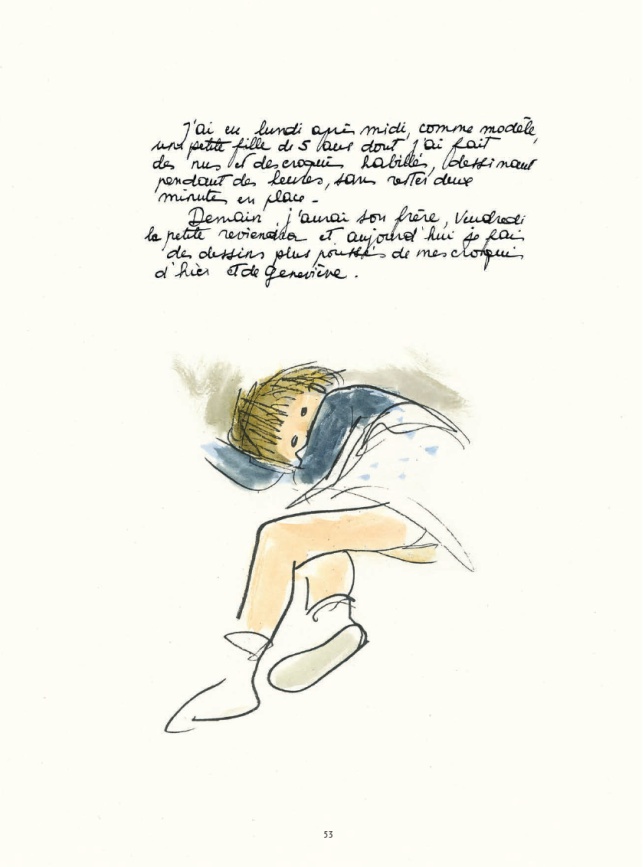 J'ai eu lundi après midi, comme modèle,
une petite fille de 5 ans dont j'ai fait
des nus et des croquis habillés, dessinant
pendant des heures, sans rester deux
minutes en place -
Demain, j'aurai son frère, Vendredi
la petite reviendra et aujourd'hui je fais
des dessins plus poussés de mes croquis
d'hier et de Geneviève.
53